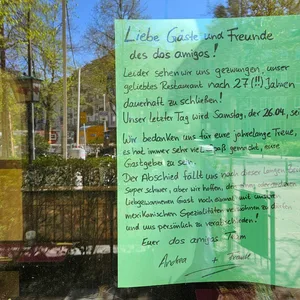 Liebe Gäste und Freunde
des dos amigos!
Leider sehen wir uns gezwungen, unser
geliebtes Restaurant nach 27 (!!) Jahren
dauerhaft zu schließen!
Unser letzter Tag wird Samstag, der 26.04. sei
Wir bedanken uns für eine jahrelange Treue,
es hat immer sehr viel Spaß gemacht, eure
Gastgeber zu sein.
Der Abschied fällt uns nach dieser langen Zeit
super schwer, aber wir hoffen, den
liebgewonnenen Gast noch einmal mit unseren
mexikanischen Spezialitäten verwöhnen zu dürfen
und uns persönlich zu verabschieden!
Euer dos amigos Team
Andrea +